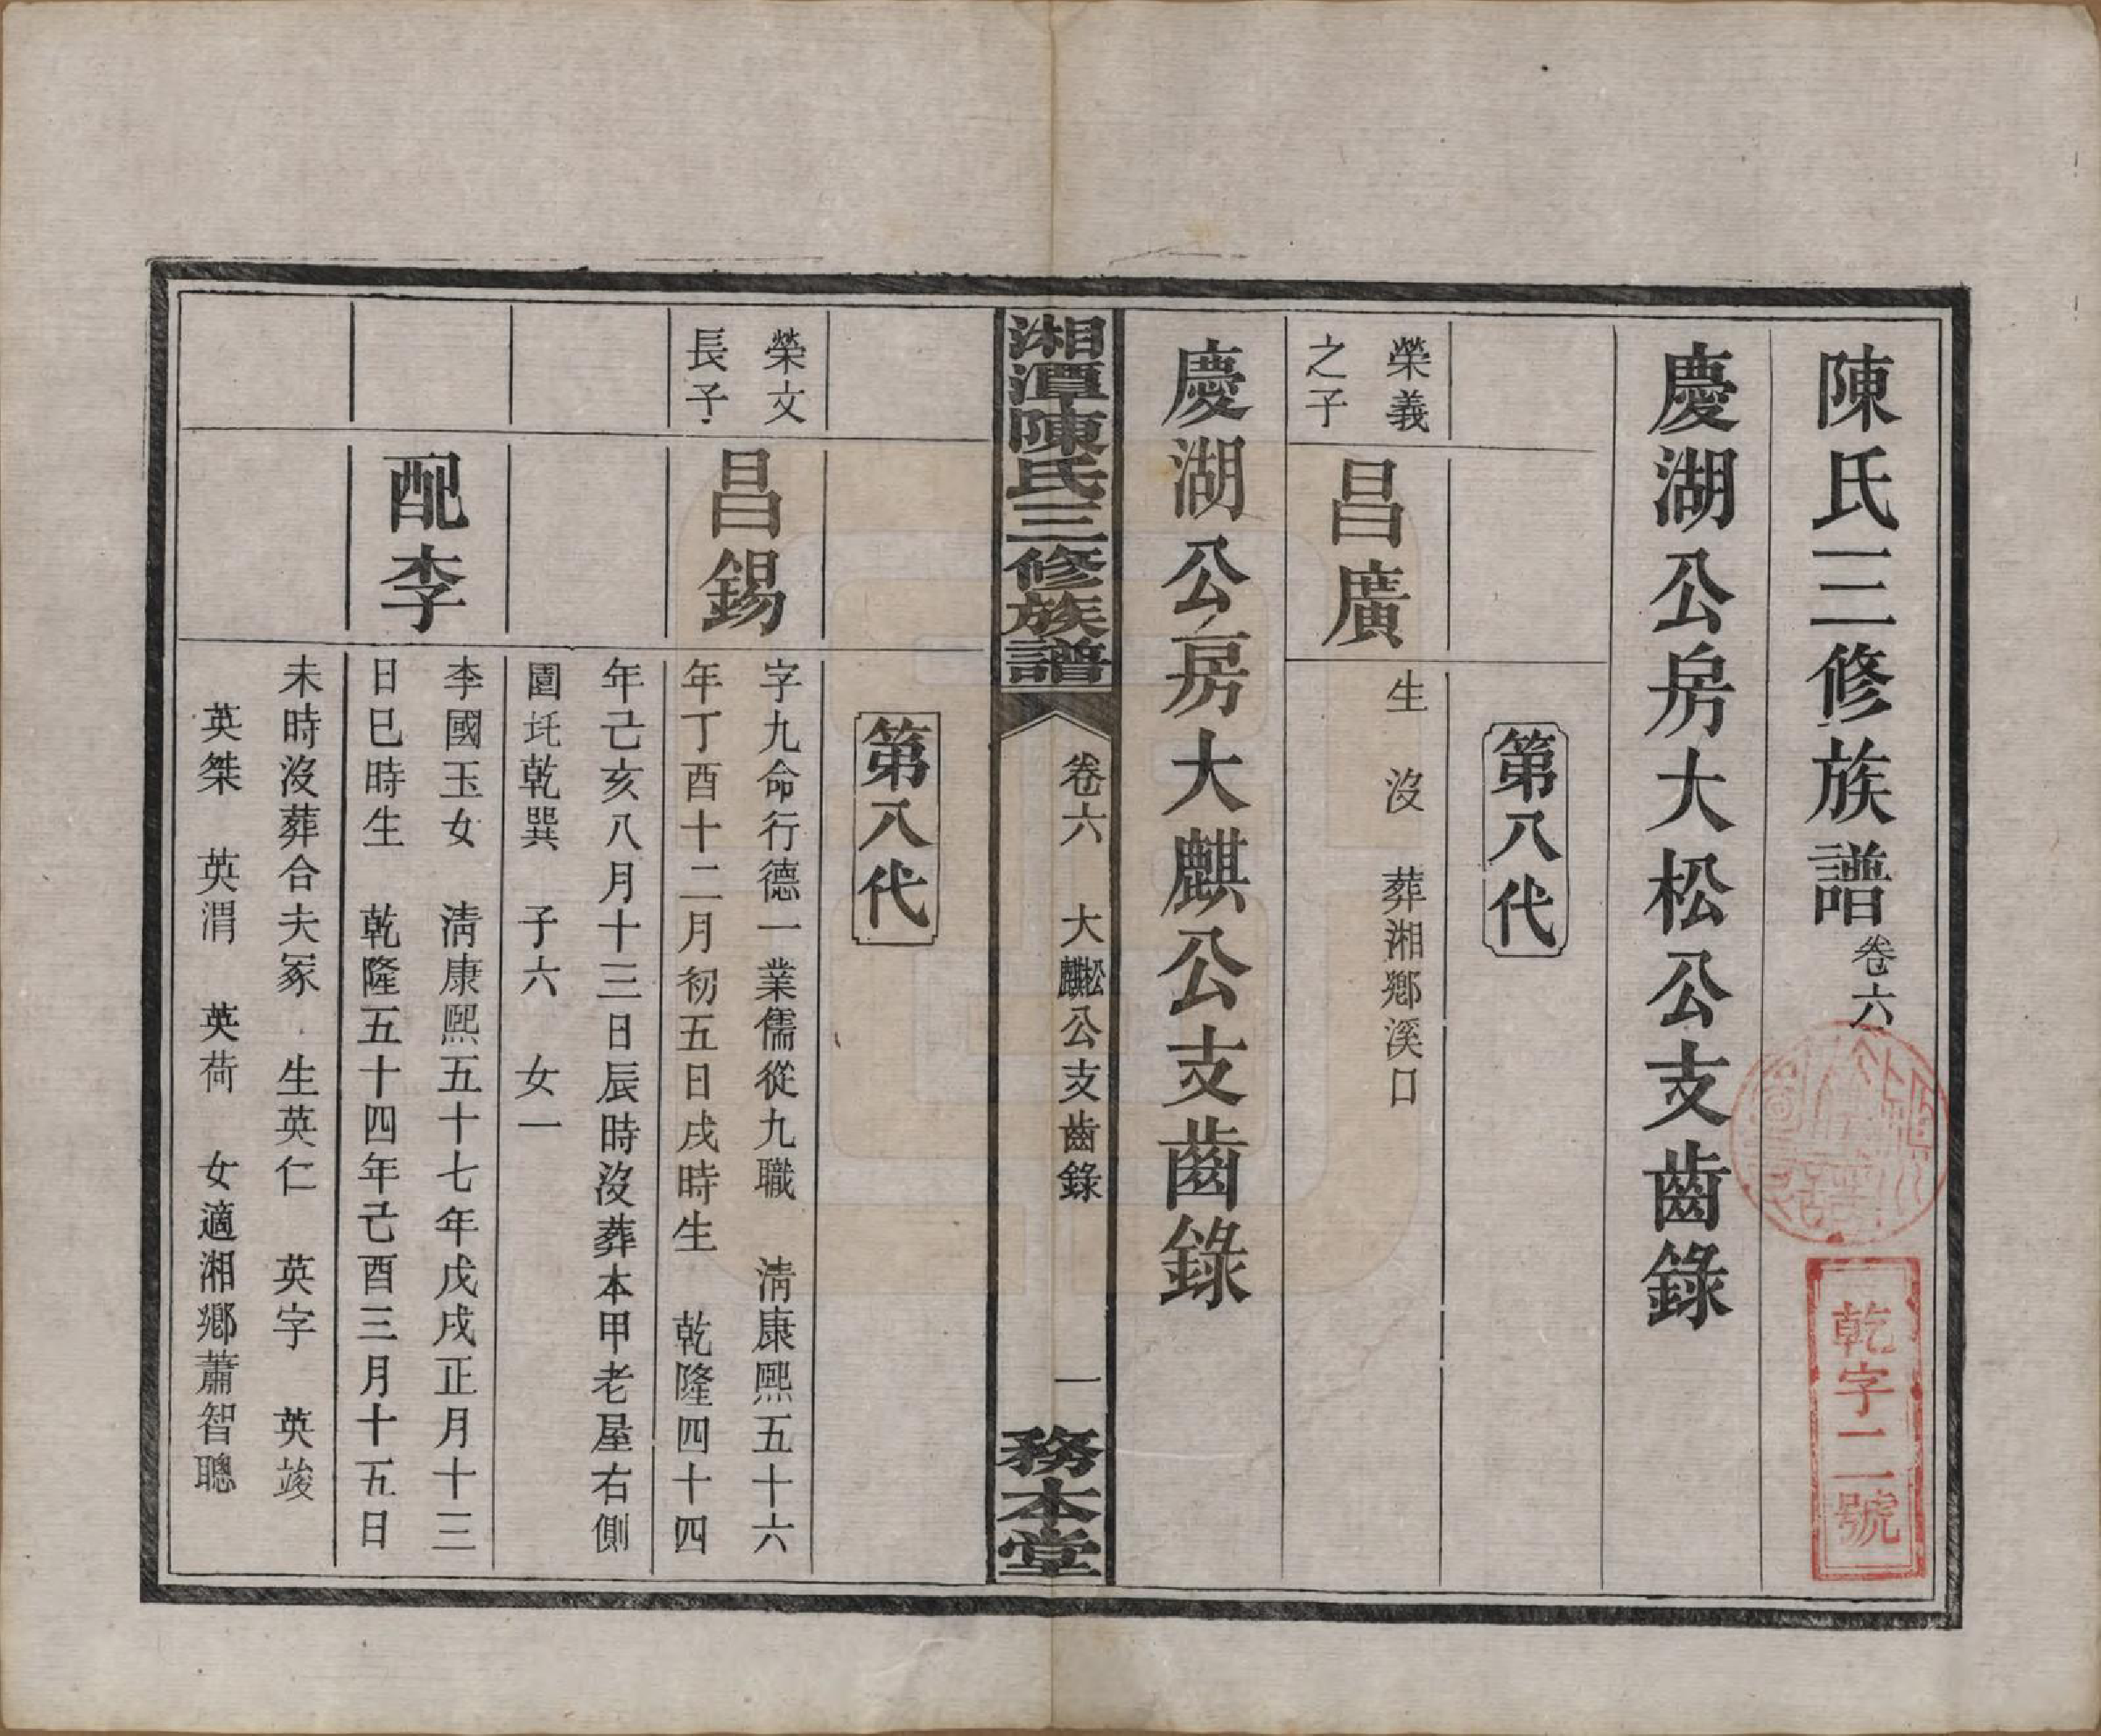 陳氏三修族譜卷六
乾字二號
慶湖公房大松公支齒錄
第八代
榮義
之子
昌廣
生　沒　葬湘鄕溪口
慶湖公房大麒公支齒錄
湘潭陳氏三修族譜
卷六　大松麒公支齒錄　一
務本堂
第八代
榮文
長子
昌錫
字九命行德一業儒從九職　淸康熙五十六
年丁酉十二月初五日戌時生　乾隆四十四
年己亥八月十三日辰時沒葬本甲老屋右側
園圫乾巽　子六　女一
配李
李國玉女　淸康熙五十七年戊戌正月十三
日巳時生　乾隆五十四年己酉三月十五日
未時沒葬合夫冢　生英仁　英字　英竣
英桀　英渭　英荷　女適湘鄕蕭智聰